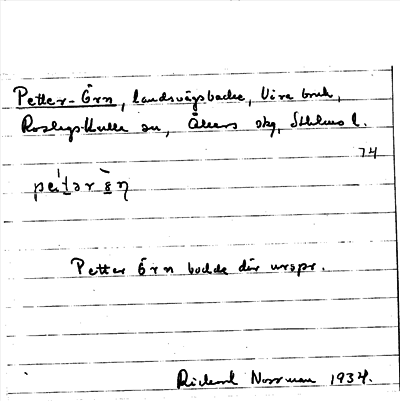 Petter-Örn, landsvägsbacke, Vira bruk,
Roslagskulla sn, Åkers skg, Sthlms l.
74
Petter Örn bodde där urspr.
Rickard Norrman 1934.